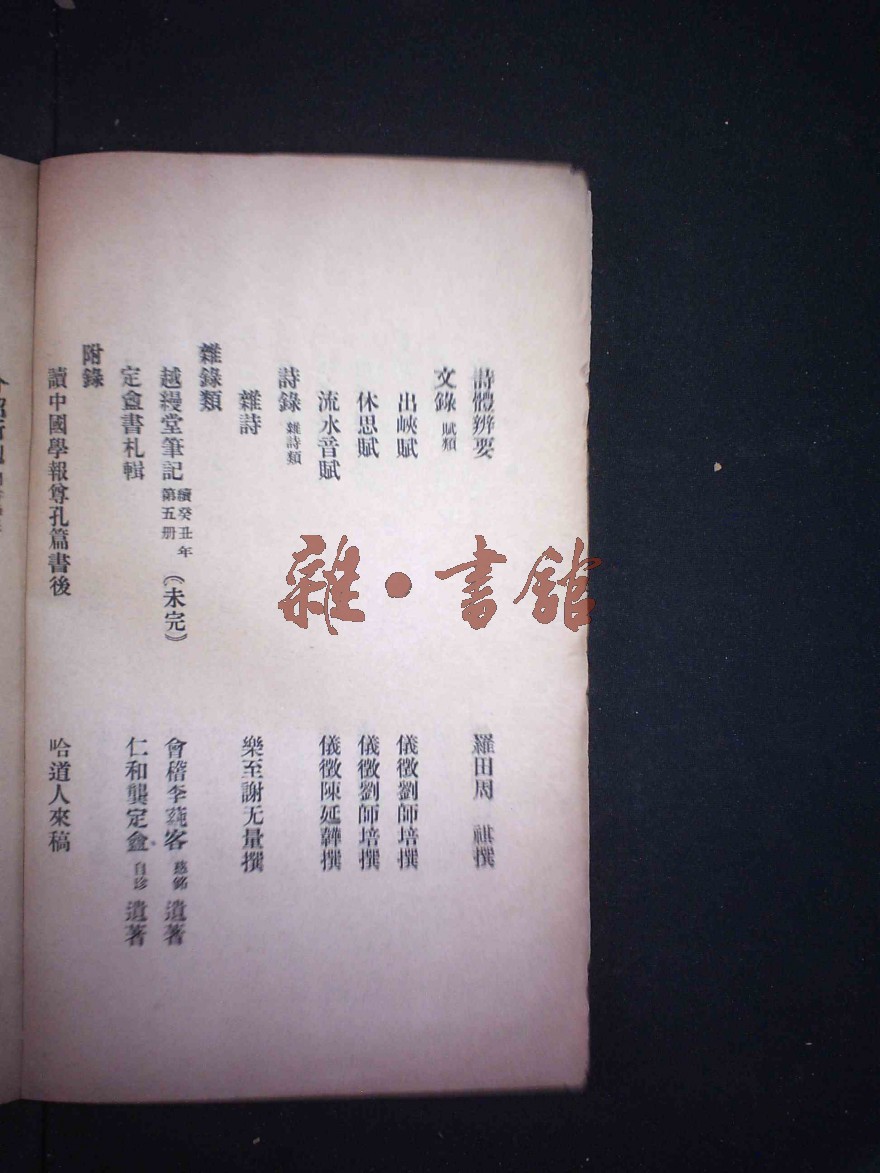 詩體辨要 羅田周 祺撰
文錄 賦類
出峽賦 儀徵劉師培撰
休思賦 儀徵劉師培撰
流水音賦 儀徵陳延韡撰
詩錄 雜詩類
雜詩 樂至謝无量撰
雜錄類
越縵堂筆記 續癸丑年第五册 (未完) 會稽李蒓客 慈銘 遺著
定盦書札輯 仁和龔定盦 自珍 遺著
附錄
讀中國學報尊孔篇書後 哈道人來稿
雜·書館